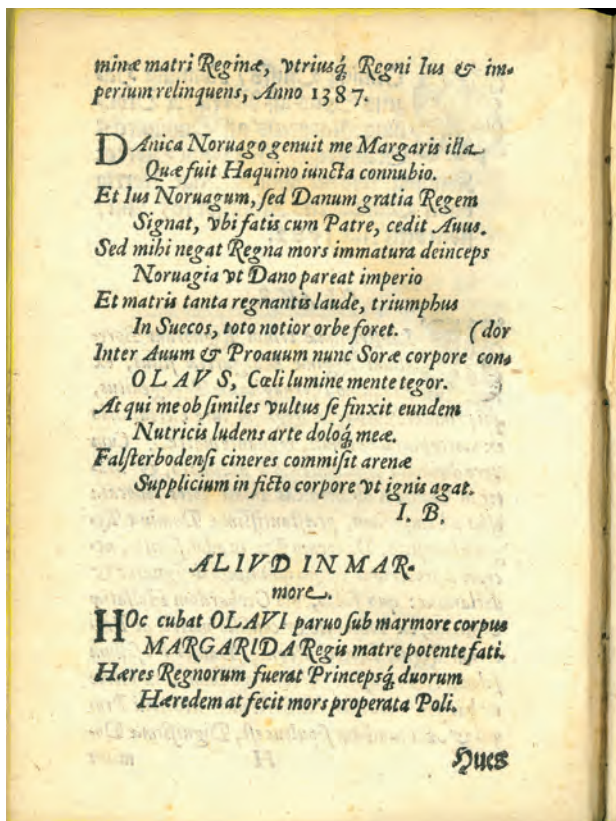 minæ matri Reginæ, vtriusq́; Regni Ius & im-
perium relinquens, Anno 1387.
DAnica Noruago genuit me Margaris illa
Quæ fuit Haquino iuncta connubio.
Et Ius Noruagum, sed Danum gratia Regem
Signat, vbi fatis cum Patre, cedit Auus.
Sed mihi negat Regna mors immatura deinceps
Noruagia vt Dano pareat imperio
Et matris tanta regnantis laude, triumphus
In Suecos, toto notior orbe foret. (dor
Inter Auum & Proauum nunc Soræ corpore con-
OLAVS, Cœli lumine mente tegor.
At qui me ob similes vultus se finxit eundem
Nutricis ludens arte doloq́; meæ.
Falsterbodensi cineres commisit arenæ
Supplicium in ficto corpore vt ignis agat.
I. B.
ALIVD IN MAR-
more.
HOc cubat OLAVI paruo sub marmore corpus
MARGARIDA Regis matre potente sati.
Hæres Regnorum fuerat Princepsq́; duorum
Hæredem at fecit mors properata Poli.
Hues